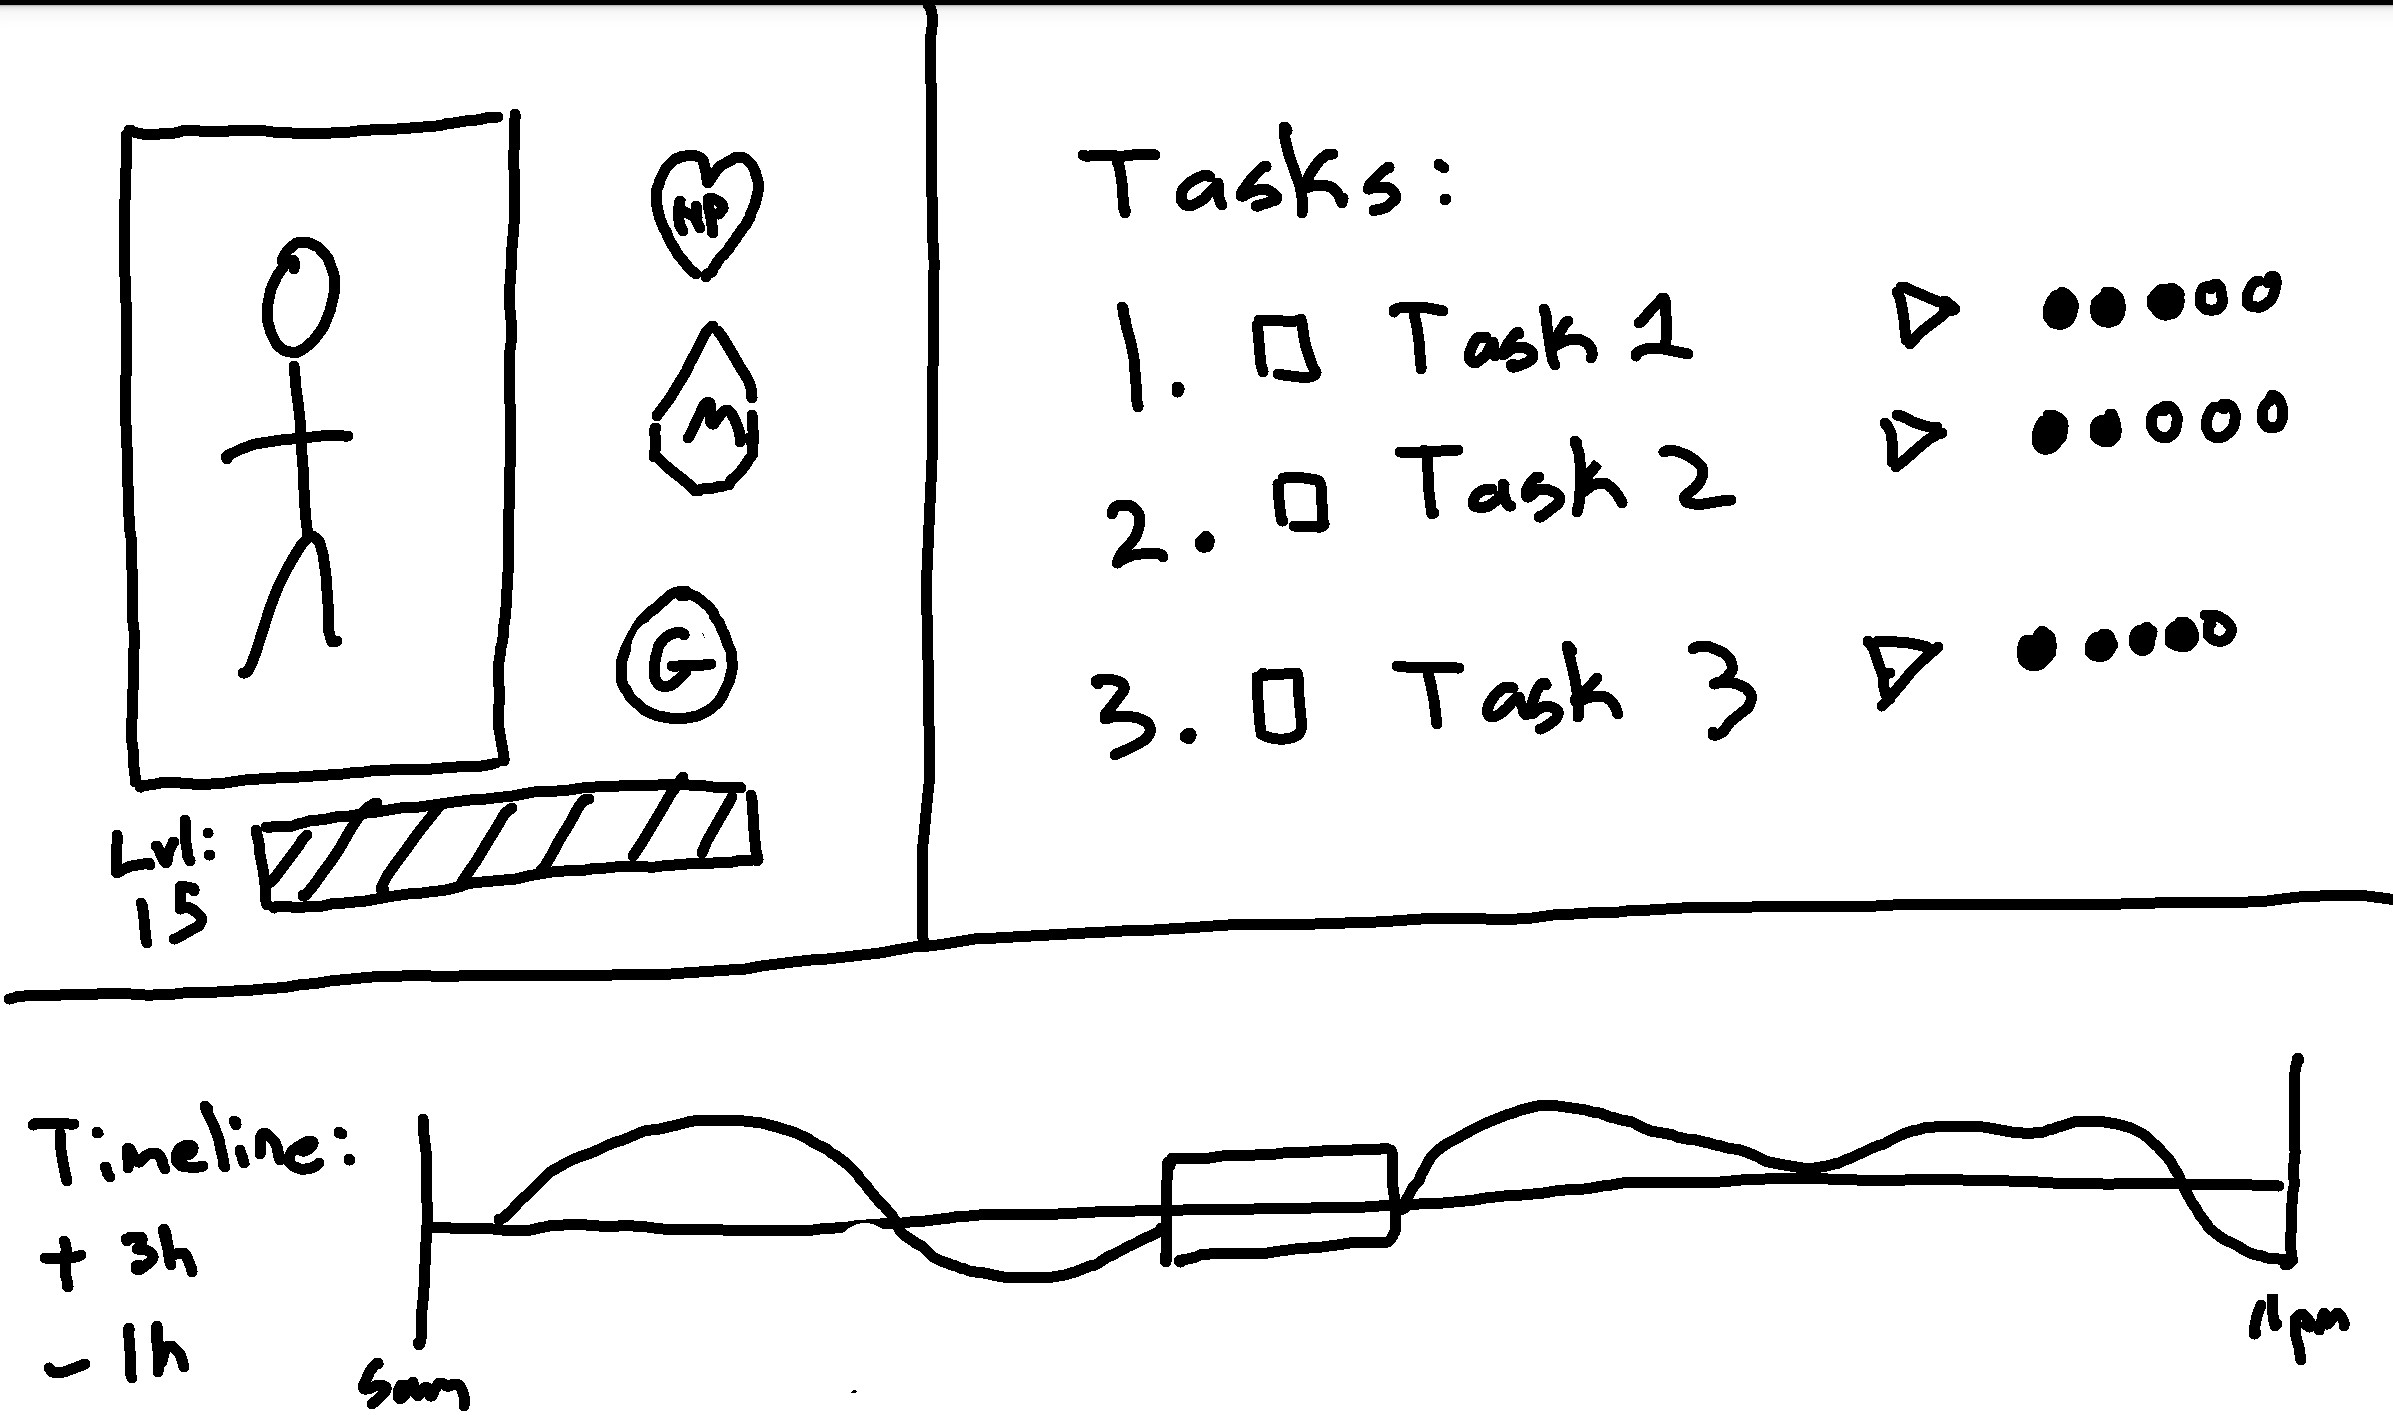 HP
M
G
Lvl:
15
Tasks:
1. Task 1
2. Task 2
3. Task 3
Timeline:
+ 3h
- 1h
5am
11pm